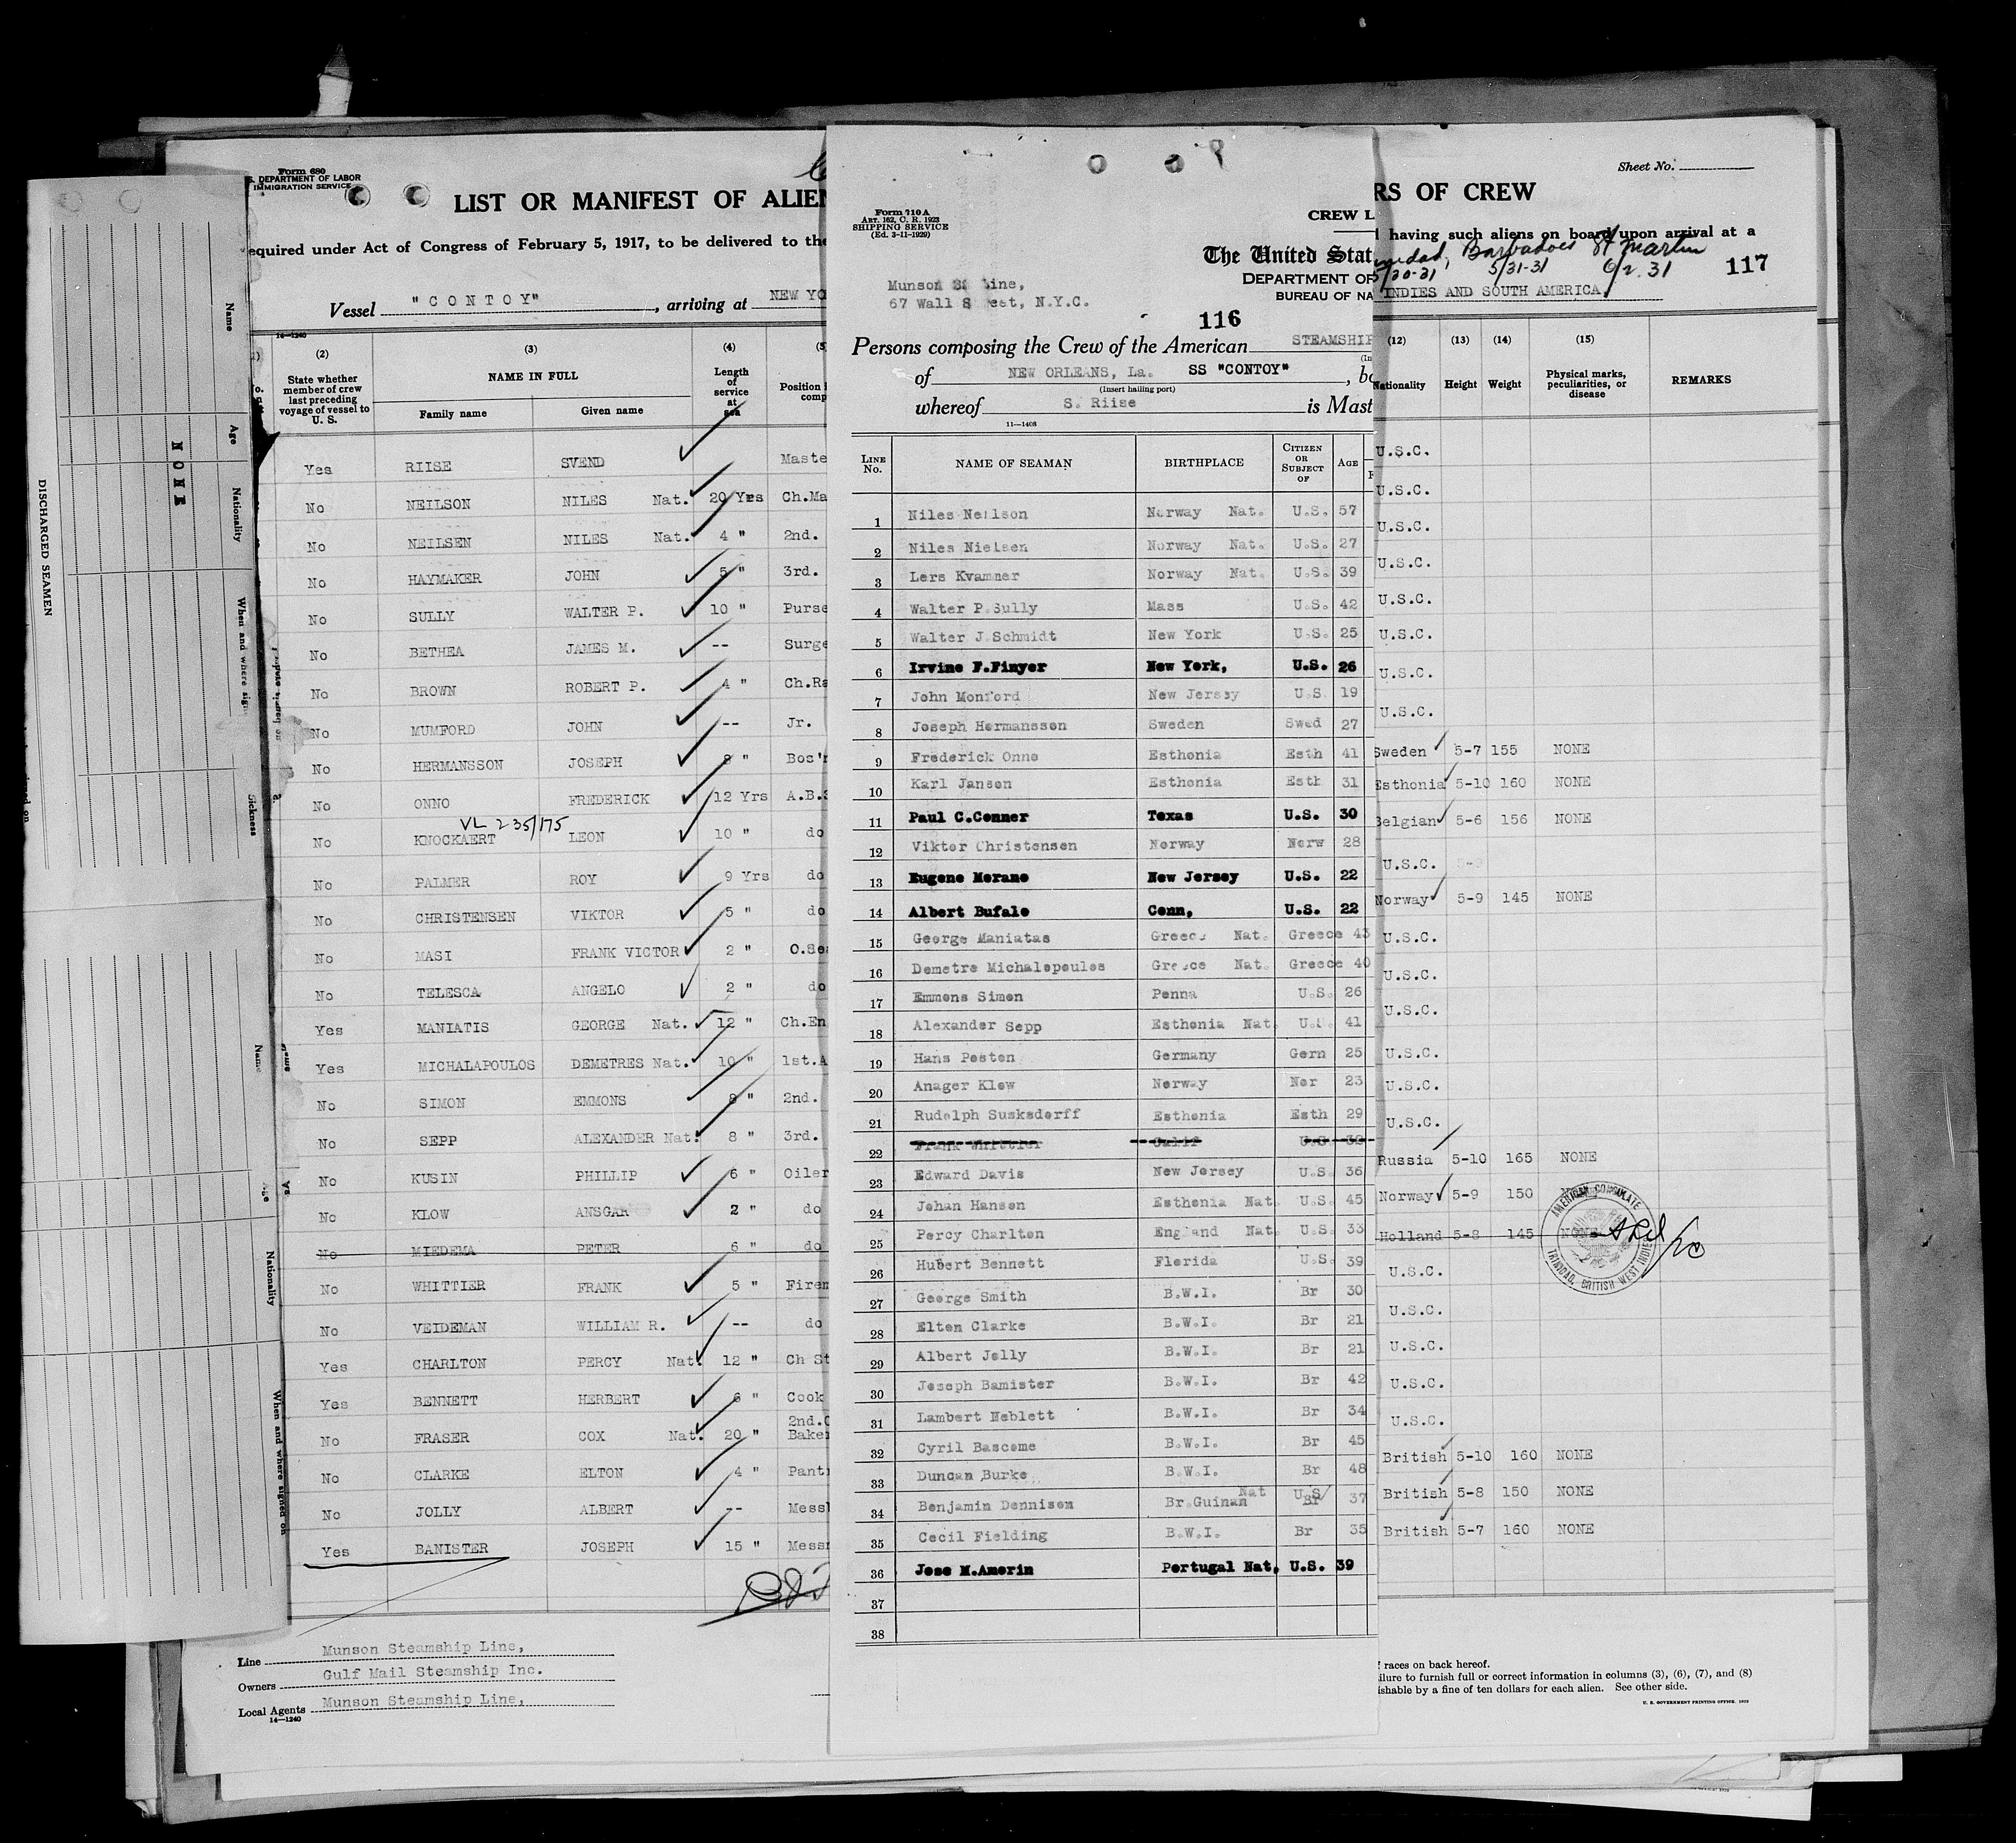 Form 680
S. DEPARTMENT OF LABOR
IMMIGRATION SERVICE
LIST OR MANIFEST OF ALIEN
equired under Act of Congress of February 5, 1917, to be delivered to the
Vessel "CONTOY", arriving at NEW YO
14—1240
(2) (3) (4)
State whether member of crew last preceding voyage of vessel to U. S.
NAME IN FULL
Family name Given name
Length of service at sea
Position
comp
Yes RIISE SVEND Maste
No NEILSON NILES Nat. 20 Yrs Ch.Ma
No NEILSEN NILES Nat. 4 " 2nd.
No HAYMAKER JOHN 5 " 3rd.
No SULLY WALTER P. 10 " Purse
No BETHEA JAMES M. -- Surge
No BROWN ROBERT P. 4 " Ch.Ra
No MUMFORD JOHN -- Jr.
No HERMANSSON JOSEPH 8 " Bos'n
No ONNO FREDERICK 12 Yrs A.B.S
VL 235/175
No KNOCKAERT LEON 10 " do
No PALMER ROY 9 Yrs do
No CHRISTENSEN VIKTOR 5 " do
No MASI FRANK VICTOR 2 " O.Sea
No TELESCA ANGELO 2 " do
Yes MANIATIS GEORGE Nat. 12 " Ch.En
Yes MICHALAPOULOS DEMETRES Nat. 10 " 1st.A
No SIMON EMMONS 8 " 2nd.
No SEPP ALEXANDER Nat. 8 " 3rd.
No KUSIN PHILLIP 6 " Oiler
No KLOW ANSGAR 2 " do
No MIEDEMA PETER 6 " do
No WHITTIER FRANK 5 " Firem
No VEIDEMAN WILLIAM R. -- do
Yes CHARLTON PERCY Nat. 12 " Ch St
Yes BENNETT HERBERT 6 " Cook
2nd.C
No FRASER COX Nat. 20 " Baker
No CLARKE ELTON 4 " Pantr
No JOLLY ALBERT -- Messb
Yes BANISTER JOSEPH 15 " Messm
Line Munson Steamship Line,
Owners Gulf Mail Steamship Inc.
Local Agents Munson Steamship Line,
14—1240
Name
Age
Nationality
When and where sig
Sickness
NONE
DISCHARGED SEAMEN
Name
Nationality
When and where signed on
Form 710 A
ART. 162, C. R. 1923
SHIPPING SERVICE
(Ed. 3-11-1929)
CREW L
The United Stat
DEPARTMENT OF
BUREAU OF NA
Munson SS Line,
67 Wall S eet, N.Y.C.
116
Persons composing the Crew of the American STEAMSHIP
(In
of NEW ORLEANS, La. SS "CONTOY", bo
(Insert hailing port)
whereof S. Riise is Mast
11—1408
LINE No. NAME OF SEAMAN BIRTHPLACE CITIZEN OR SUBJECT OF AGE
1 Niles Neilson Norway Nat. U.S. 57
2 Niles Nielsen Norway Nat. U.S. 27
3 Lers Kvamner Norway Nat. U.S. 39
4 Walter P.Sully Mass U.S. 42
5 Walter J.Schmidt New York U.S. 25
6 Irvine F.Finyer New York, U.S. 26
7 John Monford New Jersey U.S. 19
8 Joseph Hermansson Sweden Swed 27
9 Frederick Onno Esthonia Esth 41
10 Karl Jansen Esthonia Esth 31
11 Paul C.Conner Texas U.S. 30
12 Viktor Christensen Norway Norw 28
13 Eugene Merano New Jersey U.S. 22
14 Albert Bufalo Conn, U.S. 22
15 George Maniatas Greece Nat. Greece 43
16 Demetre Michalopoulos Greece Nat. Greece 40
17 Emmons Simon Penna U.S. 26
18 Alexander Sepp Esthonia Nat. U.S. 41
19 Hans Posten Germany Germ 25
20 Anager Klow Norway Nor 23
21 Rudolph Susksdorff Esthonia Esth 29
22 Frank Whittier Calif U.S
23 Edward Davis New Jersey U.S. 36
24 Johan Hansen Esthonia Nat. U.S. 45
25 Percy Charlton England Nat. U.S. 33
26 Hubert Bennett Florida U.S. 39
27 George Smith B.W.I. Br 30
28 Elton Clarke B.W.I. Br 21
29 Albert Jolly B.W.I. Br 21
30 Joseph Bamister B.W.I. Br 42
31 Lambert Neblett B.W.I. Br 34
32 Cyril Bascome B.W.I. Br 45
33 Duncan Burke B.W.I. Br 48
34 Benjamin Dennison Br.Guinan Nat U.S Br 37
35 Cecil Fielding B.W.I. Br 35
36 Jose M.Amorin Portugal Nat. U.S. 39
37
38
Sheet No.
RS OF CREW
having such aliens on board upon arrival at a
Barbadoes St Martin
5/31-31 6/2.31
117
INDIES AND SOUTH AMERICA.
(12) (13) (14) (15)
Nationality Height Weight Physical marks, peculiarities, or disease REMARKS
U.S.C.
U.S.C.
U.S.C.
U.S.C.
U.S.C.
U.S.C.
U.S.C.
U.S.C.
Sweden 5-7 155 NONE
Esthonia 5-10 160 NONE
Belgian 5-6 156 NONE
U.S.C.
Norway 5-9 145 NONE
U.S.C.
U.S.C.
U.S.C.
U.S.C.
U.S.C.
U.S.C.
Russia 5-10 165 NONE
Norway 5-9 150
Holland 5-8 145 NONE
AMERICAN CONSULATE
TRINIDAD, BRITISH WEST INDIES
U.S.C.
U.S.C.
U.S.C.
U.S.C.
U.S.C.
British 5-10 160 NONE
British 5-8 150 NONE
British 5-7 160 NONE
f races on back hereof.
ilure to furnish full or correct information in columns (3), (6), (7), and (8)
ishable by a fine of ten dollars for each alien. See other side.
U. S. GOVERNMENT PRINTING OFFICE: 1929